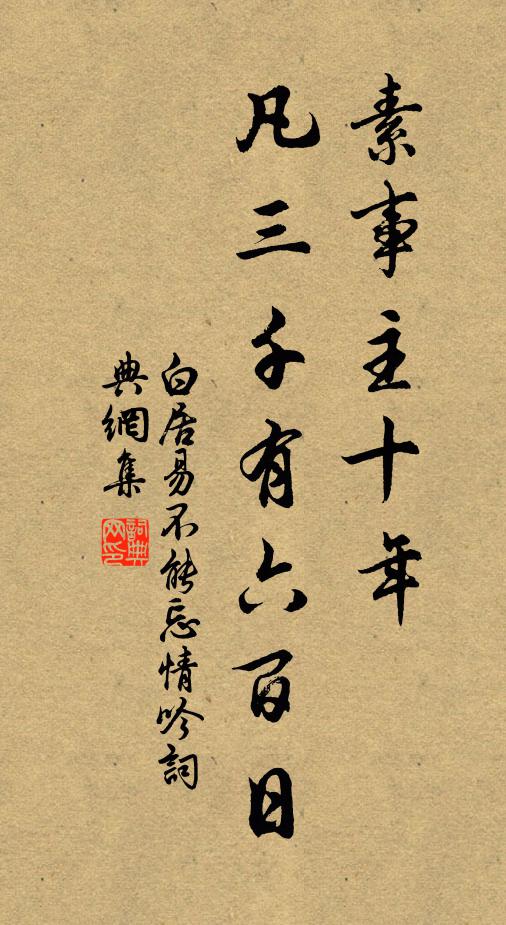 素事主十年
凡三千有六百日
白居易不能忘情吟詞
典網集
詞典
网印